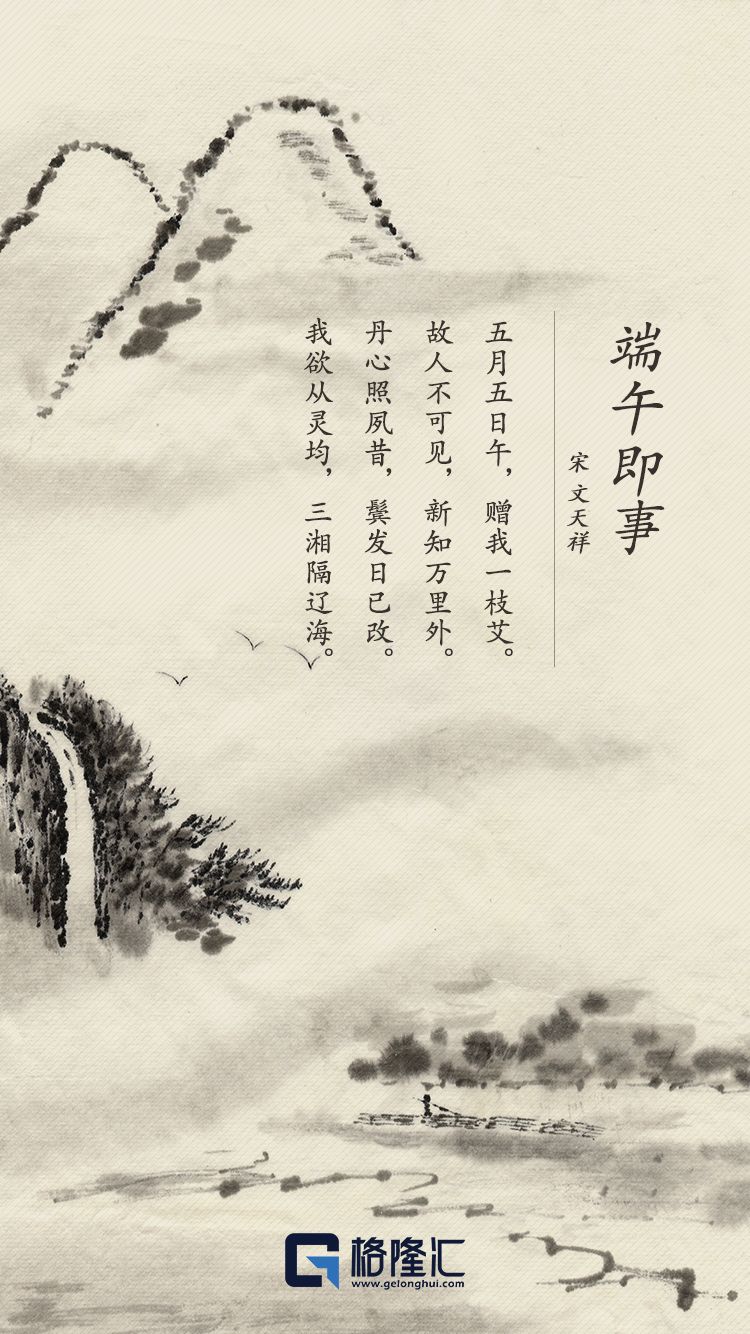 端午即事
宋 文天祥
五月五日午，赠我一枝艾。
故人不可见，新知万里外。
丹心照夙昔，鬓发日已改。
我欲从灵均，三湘隔辽海。
格隆汇
www.gelonghui.com